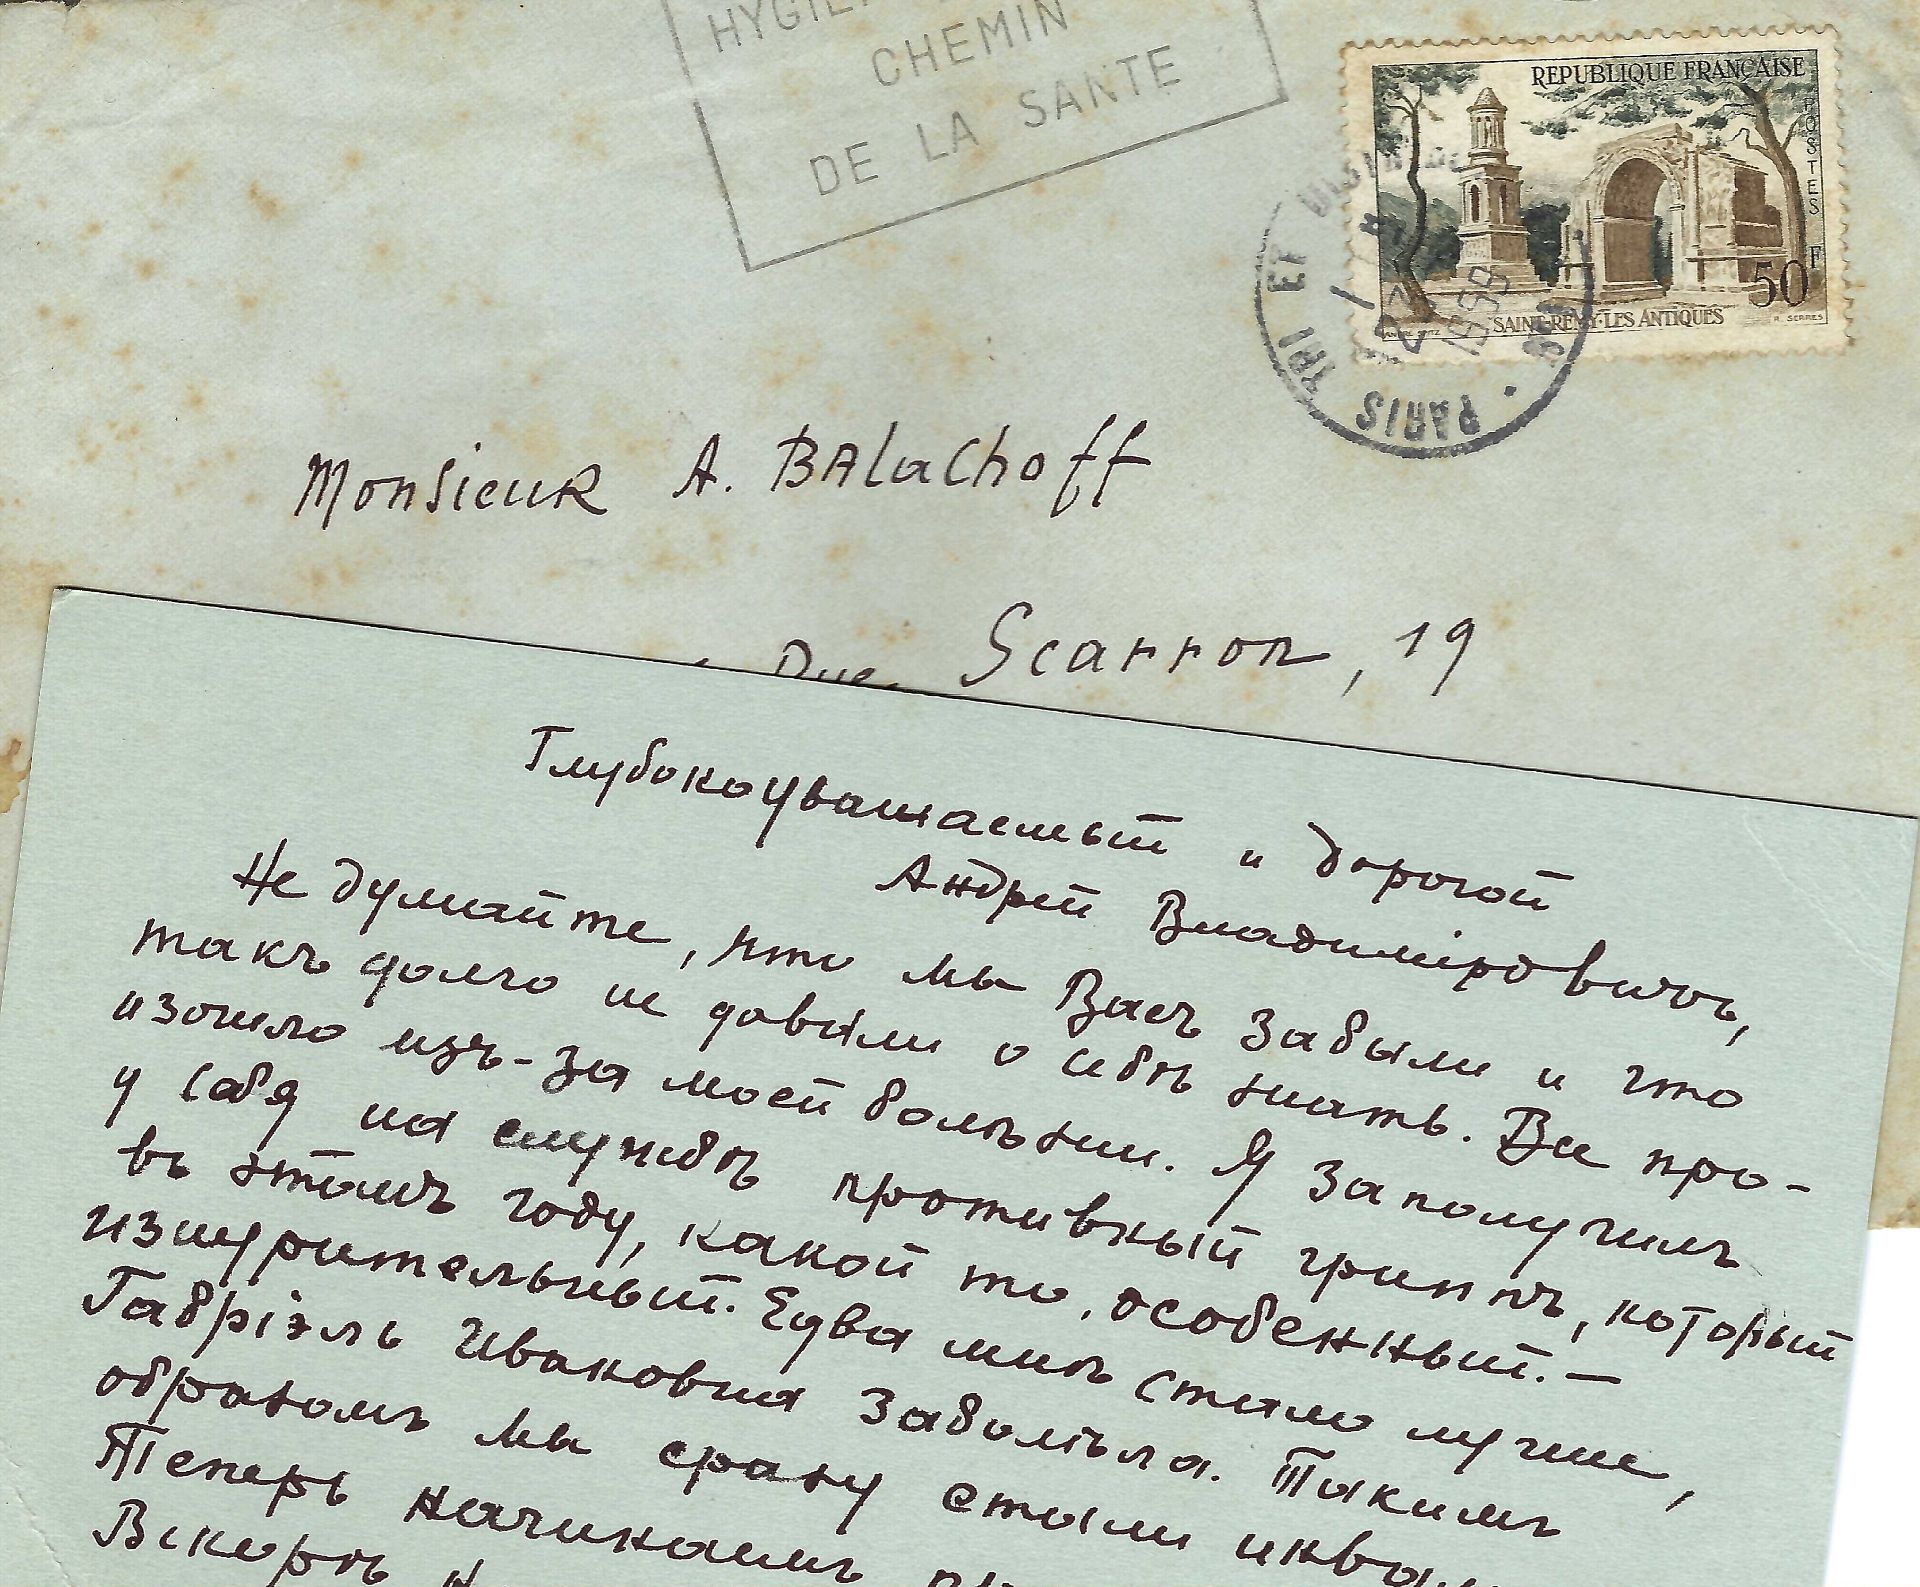 CHEMIN
DE LA SANTE
REPUBLIQUE FRANÇAISE
POSTES
50F
SAINT-REMY-LES ANTIQUES
R. SERRES
PARIS TRI ET
Monsieur A. BALachoff
Rue Scarron, 19
Глубокоуважаемый и дорогой
Андрей Владиміровичъ,
Не думайте, что мы Васъ забыли и что
такъ долго не давали о себѣ знать. Все про-
изошло изъ-за моей болѣзни. Я заполучилъ
у себя на службѣ противный гриппъ, который
въ этомъ году, какой то, особенный. —
изнурительный. Едва мнѣ стало лучше,
Габріэль Ивановна заболѣла. Такимъ
образомъ мы сразу стали
Теперь начинаемъ
Вскорѣ